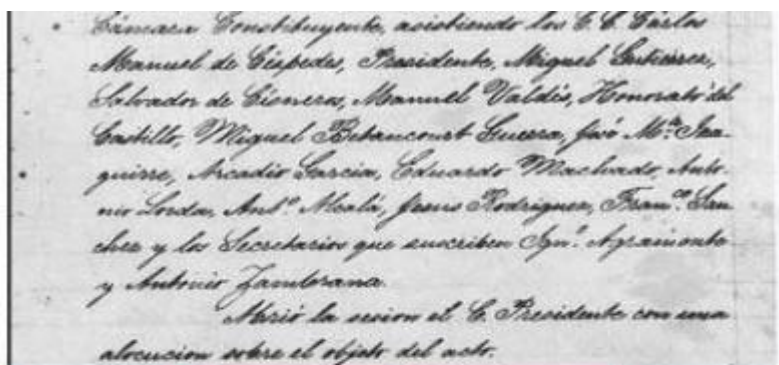 Cámara Constituyente, asistiendo los C. C. Cárlos
Manuel de Céspedes, Presidente, Miguel Gutierrez,
Salvador de Cisneros, Manuel Valdés, Honorato del
Castillo, Miguel Betancourt Guerra, José Mª Iza-
guirre, Arcadio García, Eduardo Machado, Anto-
nio Lorda, Antº Alcalá, Jesus Rodriguez, Franco. San
chez y los Secretarios que suscriben Ignº Agramonte
y Antonio Zambrana.
Abrió la sesion el C. Presidente con una
alocucion sobre el objeto del acto.